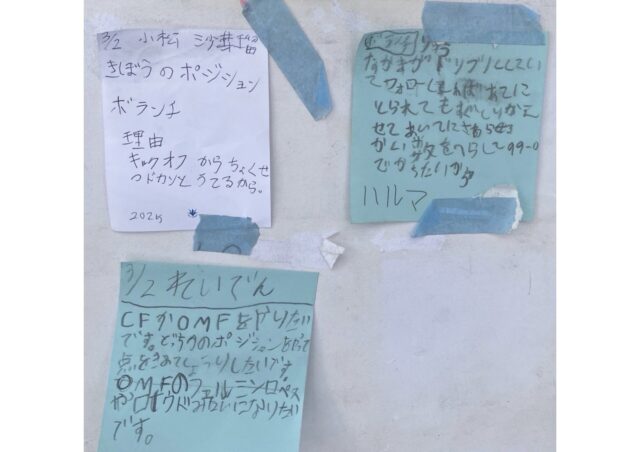 3/2 小松 沙彗留
きぼうのポジション
ボランチ
理由
キックオフからちょくせ
つドカンとうてるから。
2024
ボランチ りゆう
なかまがドリブルしてい
てフォローしればあてに
とられてもすぐとりかえ
せて
かい数をへらして99-0
でかちたいから
ハルマ
3/2 れいでん
CFかOMFをやりたい
です。どっちかのポジションをやって
点をきめてしょうりしたいです。
OMFのフェルミンロペス
やロナウドみたいになりたい
です。